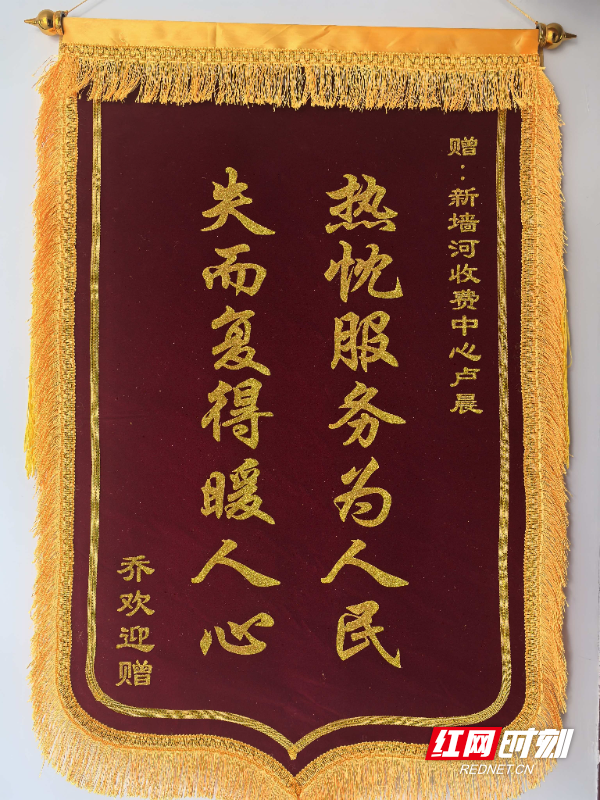 赠：新墙河收费中心卢晨
热忱服务为人民
失而复得暖人心
乔欢迎赠
红网时刻
REDNET.CN